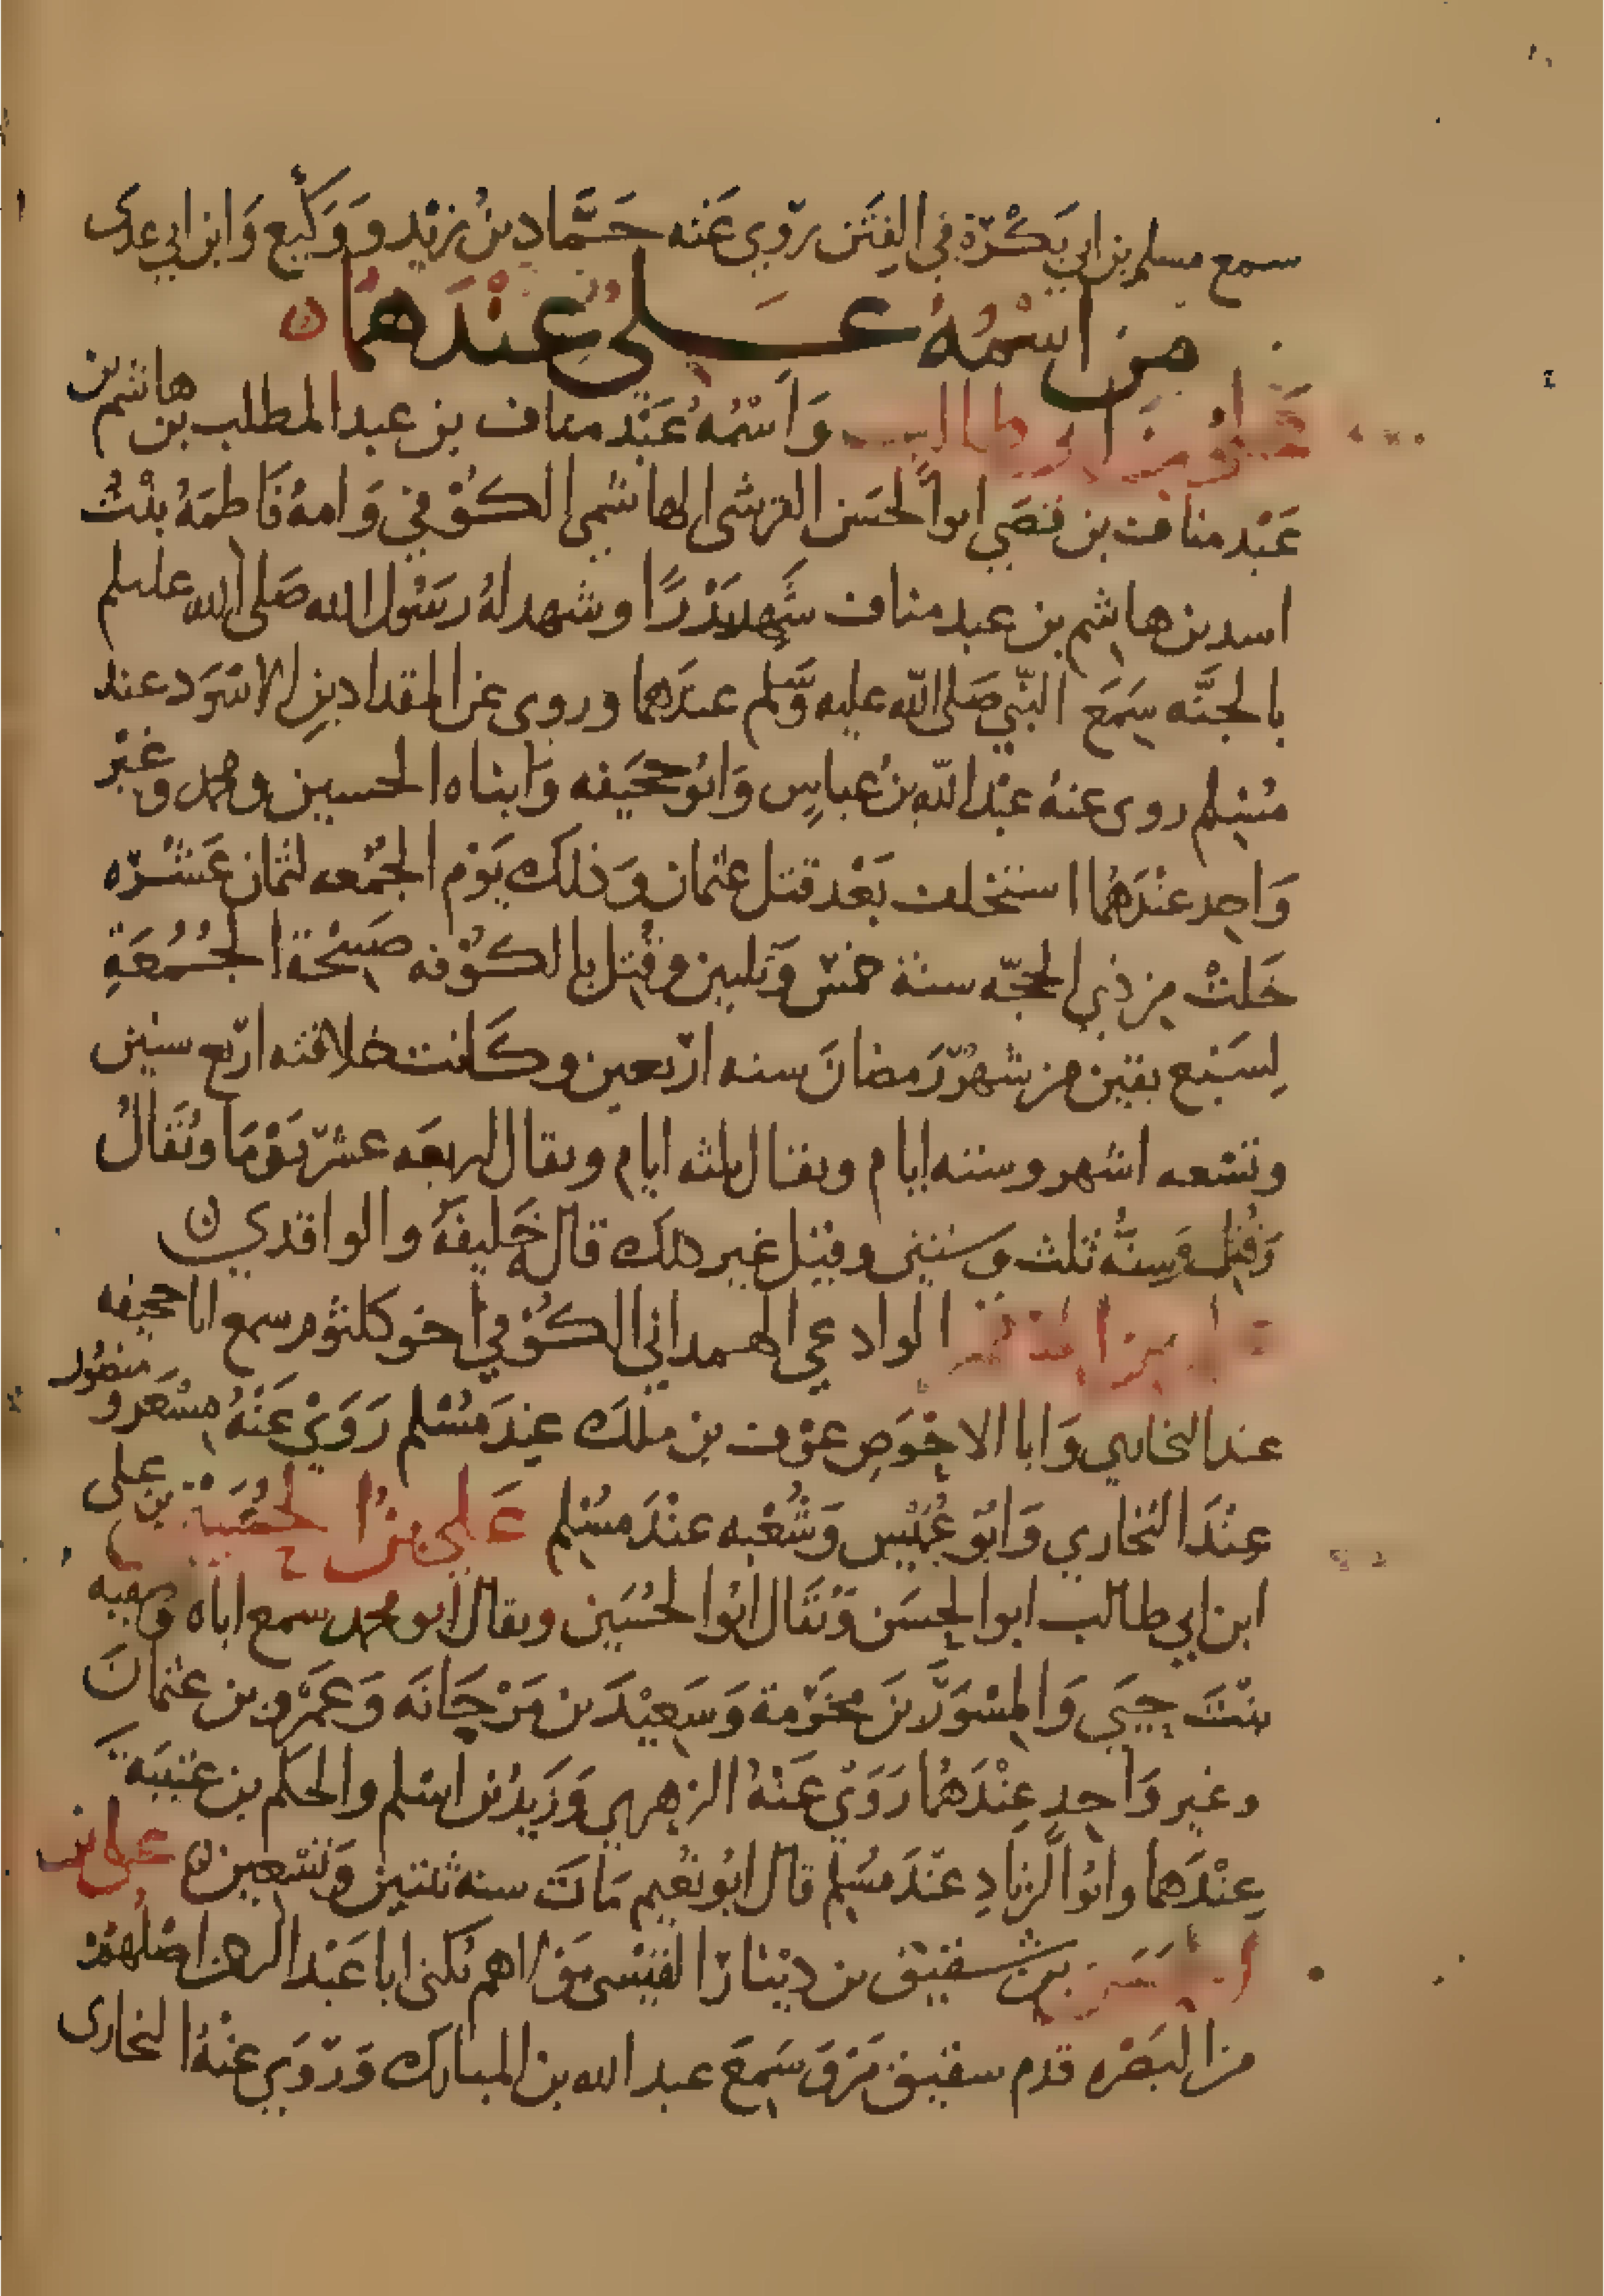 سمع مسلم بن ابي بكرة في الفتن روى عنه حماد بن زيد ووكيع وابن ابي عدى
من اسمه على عندهما ن
ابي طالب واسمه عبد مناف بن عبد المطلب بن هاشم بن
عبد مناف بن قصي ابو الحسن القرشى الهاشمى الكوفي وامه فاطمة بنت
اسد بن هاشم بن عبد مناف شهد بدرا وشهد له رسول الله صلى الله علىلم
بالجنه سمع النبي صلى الله عليه وسلم عندهما وروى عن المقداد بن الاسود عند
مسلم روى عنه عبد الله بن عباس وابو جحيفه وابناه الحسين ومحمد وغير
واحد عندهما استخلف بعد قتل عثمان وذلك يوم الجمعه لثمان عشره
خلت من ذي الحجه سنة خمس وثلثين وقتل بالكوفه صبيحة الجمعة
لسبع بقين من شهر رمضان سنه اربعين وكانت خلافته اربع سنين
وتسعه اشهر وسته ايام ويقال ثلثه ايام ويقال اربعه عشر يوما ويقال
وقتل وسنه ثلث وستين وقيل غير ذلك قال خليفه والواقدي ن
بن الوادعي الهمداني الكوفي اخو كلثوم سمع ابا جحيفه
عند البخاري وابا الاحوص عوف بن ملك عند مسلم روى عنه مسعر ومنصور
عند البخاري وابو عميس وشعبه عند مسلم على بن الحسين بن على
ابن ابي طالب ابو الحسن ويقال ابو الحسين ويقال ابو محمد سمع اباه وصفيه
بنت حيي والمسور بن مخرمة وسعيد بن مرجانه وعمرو بن عثمان
وغير واحد عندهما روى عنه الزهري وزيد بن اسلم والحكم بن عتيبة
عندهما وابو الزناد عند مسلم قال ابو نعيم مات سنه ثنتين وتسعين ن على بن
الحسن بن شقيق بن دينار القيسى مولاهم يكنى ابا عبد الرحمن اصلهم
من البصره قدم سقيق مرو سمع عبد الله بن المبارك وروى عنه البخارى